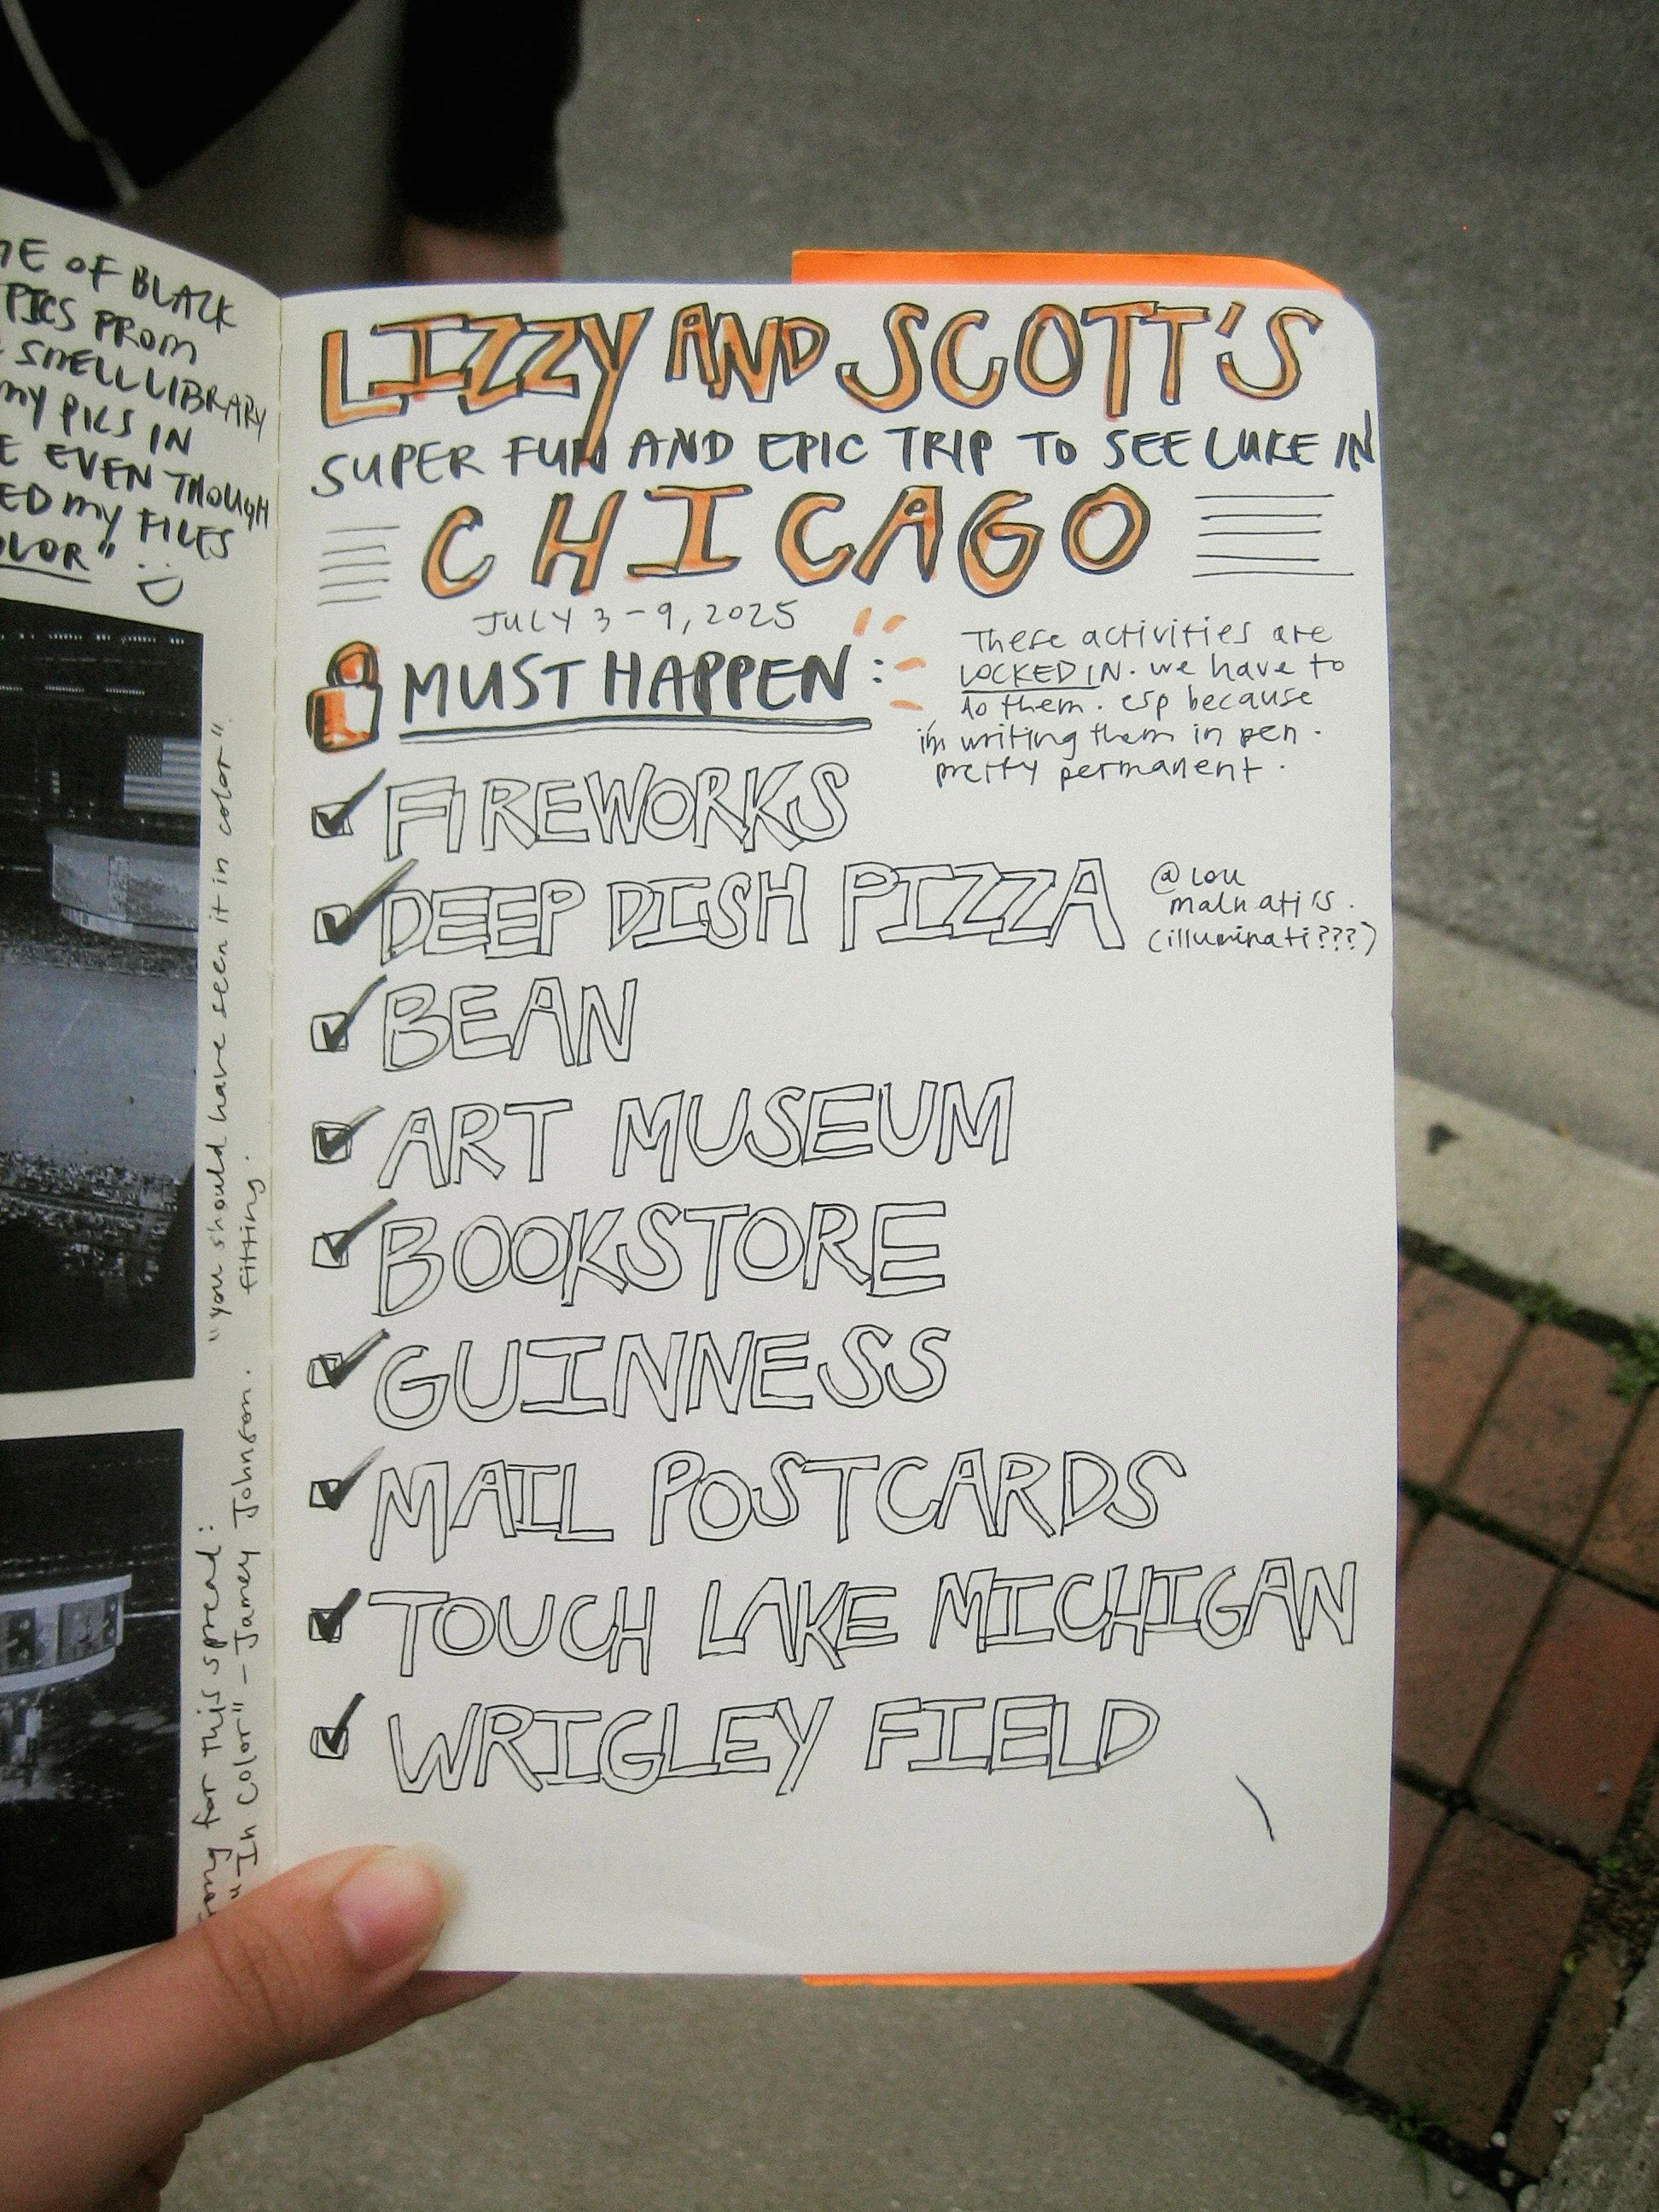 OF BLACK
PICS FROM
SMELL LIBRARY
MY PICS IN
EVEN THOUGH
MY FILES
"You should have seen it in color".
fitting.
song for this spread:
"In Color" - Jamey Johnson.
LIZZY AND SCOTT'S
SUPER FUN AND EPIC TRIP TO SEE LUKE IN
CHICAGO
JULY 3-9, 2025
MUST HAPPEN:
These activities are
LOCKED IN. we have to
do them. esp because
i'm writing them in pen.
pretty permanent.
FIREWORKS
DEEP DISH PIZZA
@ Lou
malnati's.
(illuminati???)
BEAN
ART MUSEUM
BOOKSTORE
GUINNESS
MAIL POSTCARDS
TOUCH LAKE MICHIGAN
WRIGLEY FIELD